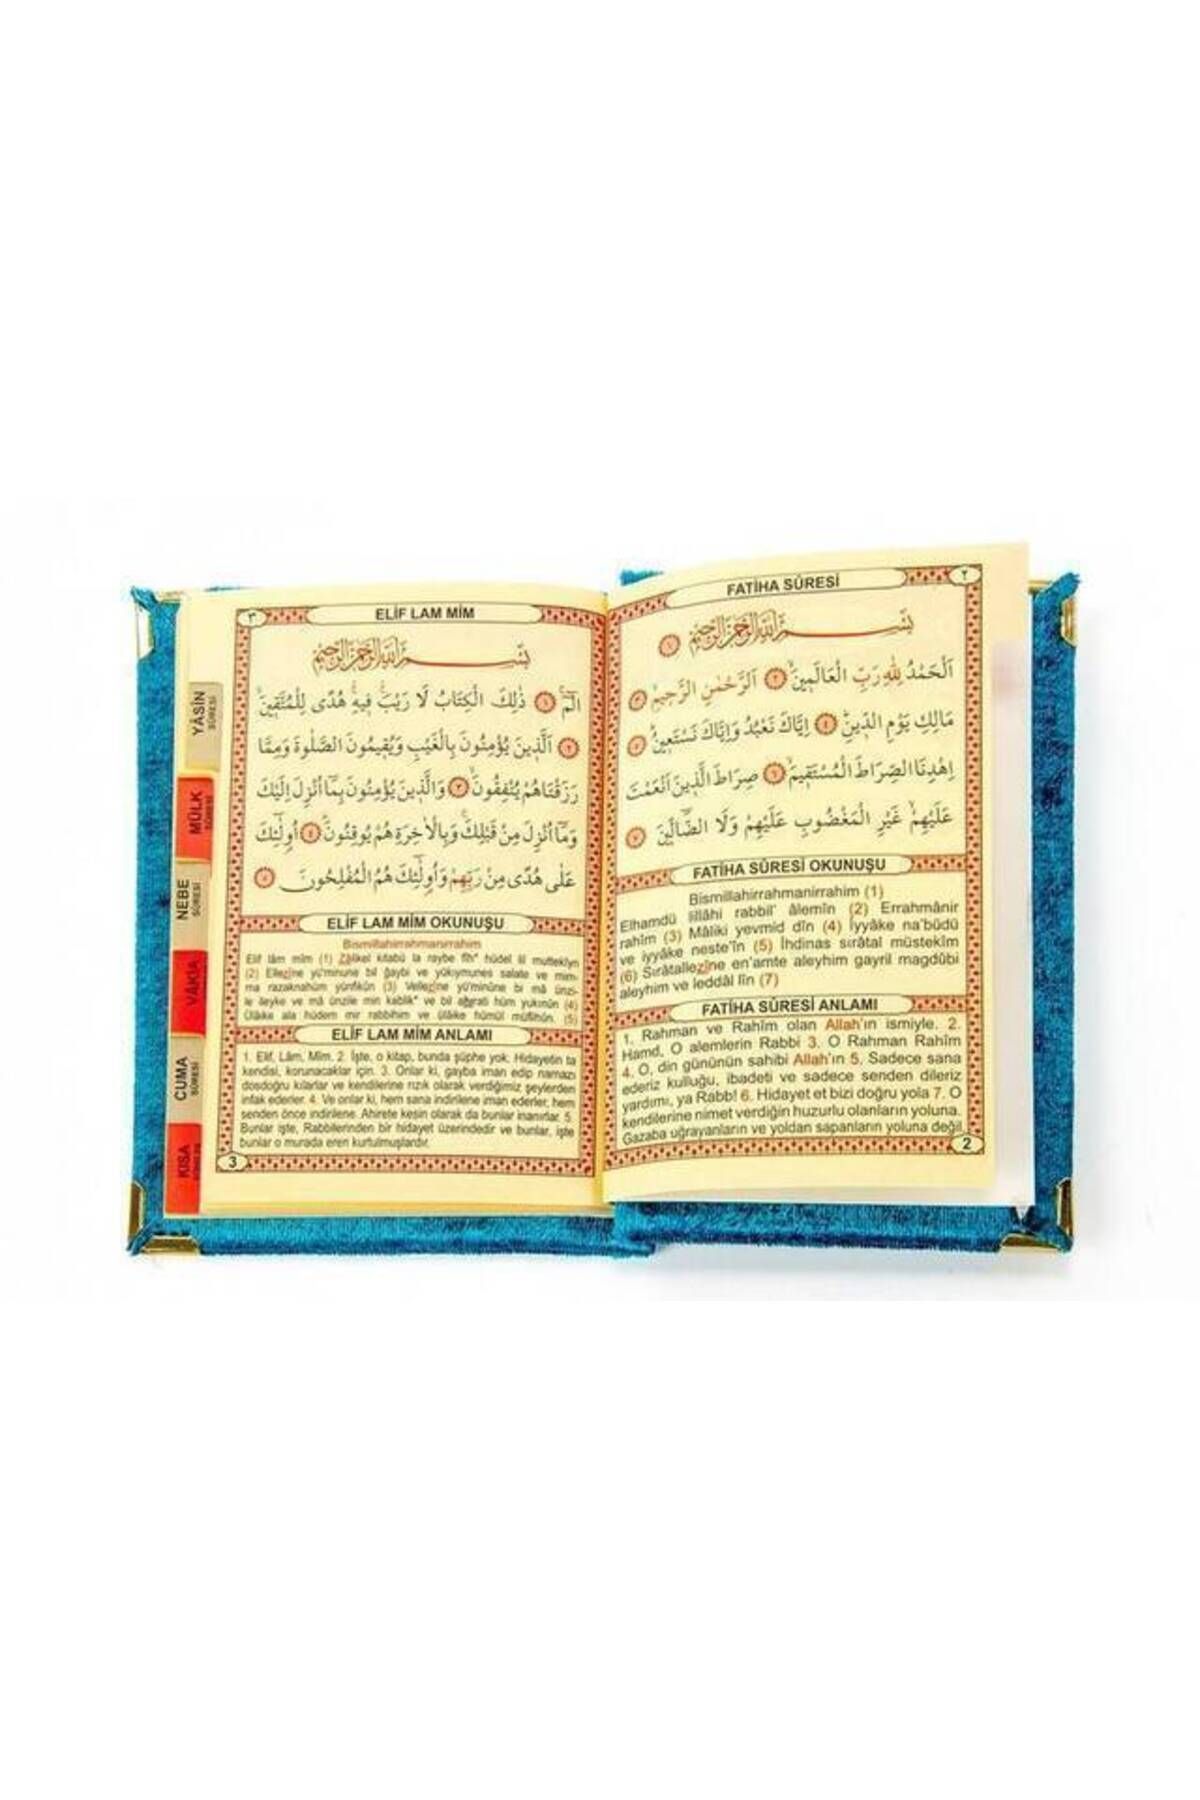 FATİHA SÛRESİ
٢
بِسْمِ اللّٰهِ الرَّحْمٰنِ الرَّحِيمِ ١
اَلْحَمْدُ لِلّٰهِ رَبِّ الْعَالَمِينَۙ ٢ اَلرَّحْمٰنِ الرَّحِيمِۙ ٣
مَالِكِ يَوْمِ الدِّينِۜ ٤ اِيَّاكَ نَعْبُدُ وَاِيَّاكَ نَسْتَعِينُۜ ٥
اِهْدِنَا الصِّرَاطَ الْمُسْتَقِيمَۙ ٦ صِرَاطَ الَّذِينَ اَنْعَمْتَ
عَلَيْهِمْۙ غَيْرِ الْمَغْضُوبِ عَلَيْهِمْ وَلَا الضَّٓالِّينَ ٧
FATİHA SÛRESİ OKUNUŞU
Bismillahirrahmanirrahim (1)
Elhamdü lillâhi rabbil' âlemîn (2) Errahmânir
rahîm (3) Mâliki yevmid dîn (4) İyyâke na'büdü
ve iyyâke neste'în (5) İhdinas sırâtal müstekîm
(6) Sırâtallezîne en'amte aleyhim gayril magdûbi
aleyhim ve leddâl lîn (7)
FATİHA SÛRESİ ANLAMI
1. Rahman ve Rahîm olan Allah'ın ismiyle. 2.
Hamd, O alemlerin Rabbi 3. O Rahman Rahîm
4. O, din gününün sahibi Allah'ın 5. Sadece sana
ederiz kulluğu, ibadeti ve sadece senden dileriz
yardımı, ya Rabb! 6. Hidayet et bizi doğru yola 7. O
kendilerine nimet verdiğin huzurlu olanların yoluna.
Gazaba uğrayanların ve yoldan sapanların yoluna değil.
2
ELİF LAM MİM
٣
بِسْمِ اللّٰهِ الرَّحْمٰنِ الرَّحِيمِ
الٓمٓۚ ١ ذٰلِكَ الْكِتَابُ لَا رَيْبَۚ فِيهِۚ هُدًى لِلْمُتَّقِينَۙ
٢ اَلَّذِينَ يُؤْمِنُونَ بِالْغَيْبِ وَيُقِيمُونَ الصَّلٰوةَ وَمِمَّا
رَزَقْنَاهُمْ يُنْفِقُونَۙ ٣ وَالَّذِينَ يُؤْمِنُونَ بِمَٓا اُنْزِلَ اِلَيْكَ
وَمَٓا اُنْزِلَ مِنْ قَبْلِكَۚ وَبِالْاٰخِرَةِ هُمْ يُوقِنُونَۜ ٤ اُولٰٓئِكَ
عَلٰى هُدًى مِنْ رَبِّهِمْ وَاُولٰٓئِكَ هُمُ الْمُفْلِحُونَ ٥
ELİF LAM MİM OKUNUŞU
Bismillahirrahmanirrahim
Elif lâm mîm (1) Zâlikel kitabü la raybe fîh* hüdel lil muttekîyn
(2) Ellezîne yü'minune bil ğaybi ve yükıymunes salate ve mim-
ma razaknahüm yünfikûn (3) Vellezîne yü'minûne bi mâ ünzi-
le ileyke ve mâ ünzile min kablik* ve bil hüm yukınûn (4)
Ülâike ala hüdem mir rabbihim ve ülâike hümül müflihûn. (5)
ELİF LAM MİM ANLAMI
1. Elif, Lâm, Mîm. 2. İşte, o kitap, bunda şüphe yok. Hidayetin ta
kendisi, korunacaklar için. 3. Onlar ki, gayba iman edip namazı
dosdoğru kılarlar ve kendilerine rızık olarak verdiğimiz şeylerden
infak ederler. 4. Ve onlar ki, hem sana indirilene iman ederler, hem
senden önce indirilene. Ahirete kesin olarak da bunlar inanırlar. 5.
Bunlar işte, Rabbilerinden bir hidayet üzerindedir ve bunlar, işte
bunlar o murada eren kurtulmuşlardır.
3
YÂSİN
SÛRESİ
MÜLK
SÛRESİ
NEBE
SÛRESİ
VAKIA
CUMA
SÛRESİ
KISA